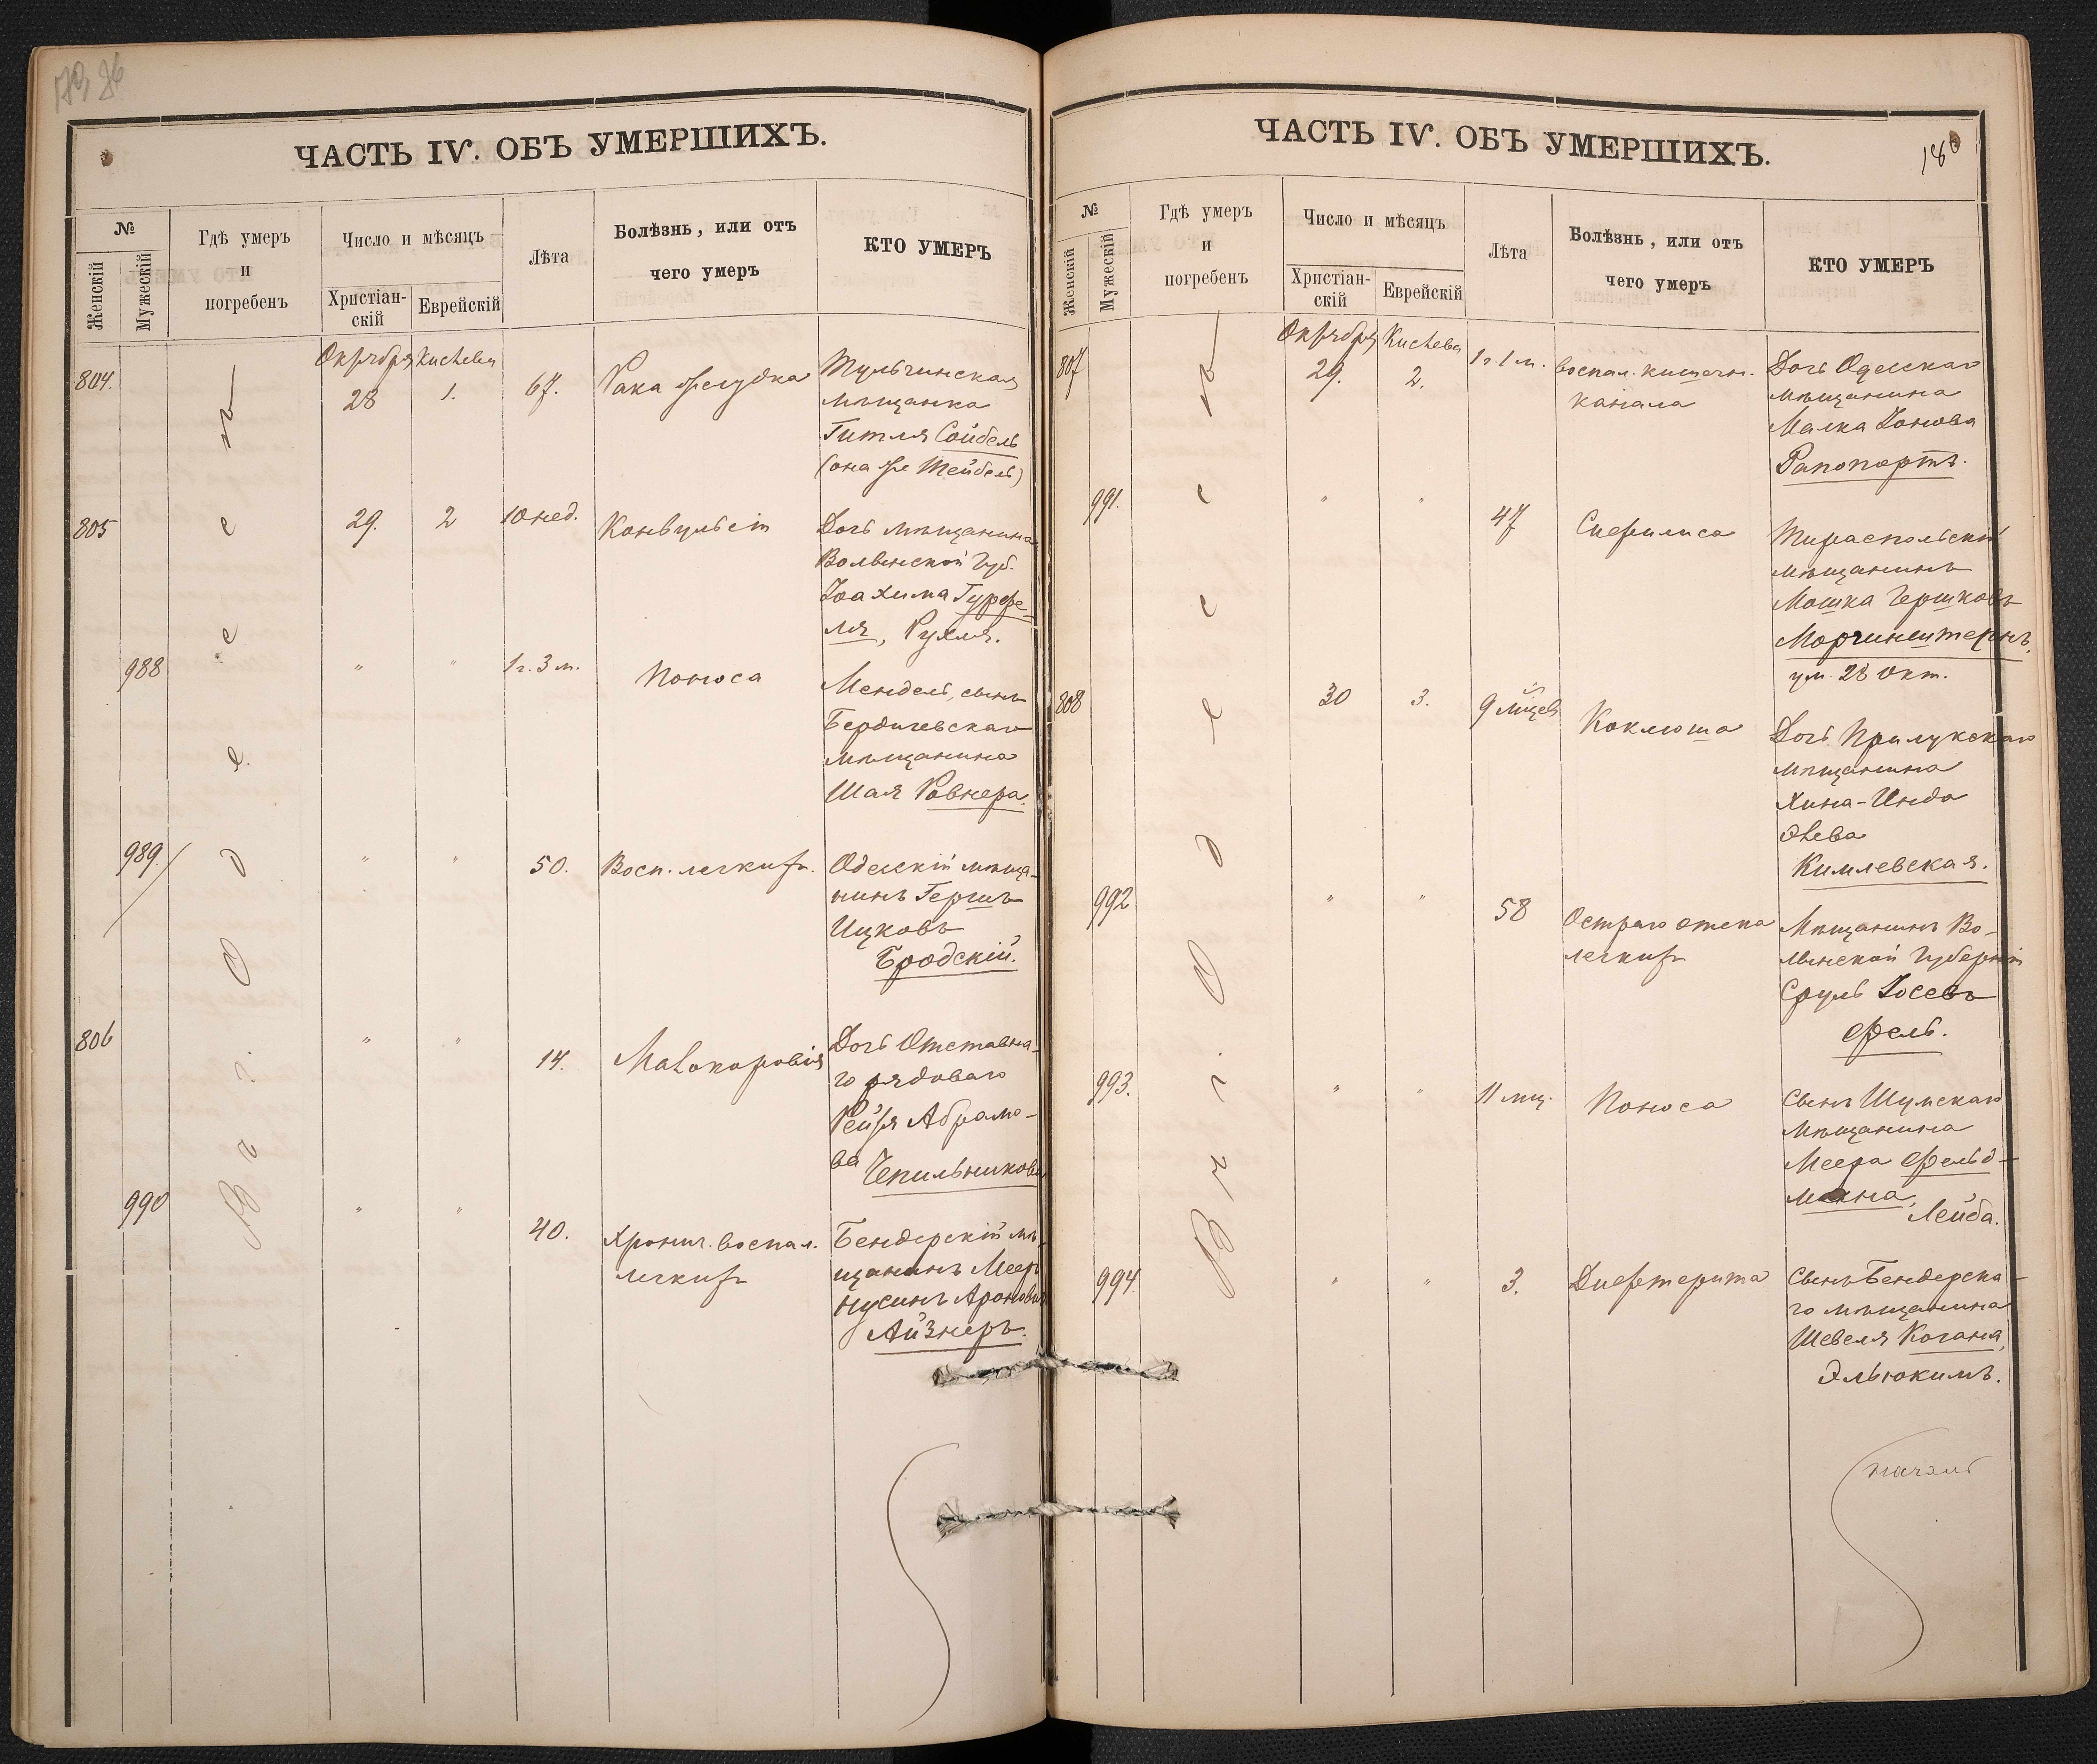 ЧАСТЬ IV. ОБЪ УМЕРШИХЪ.
№
Женскій
Мужескій
Гдѣ умеръ
и
погребенъ
Число и мѣсяцъ
Христіан-
скій
Еврейскій
Лѣта
Болѣзнь, или отъ
чего умеръ
КТО УМЕРЪ
Въ г. Одессѣ
804.
Октября
28
Кислева
1.
67.
Рака желудка
Тульчинская
мѣщанка
Гитля Сойбель
(она же Тейбель)
805
29.
2
10 нед.
Конвульсіи
Дочь мѣщанина
Волынской губ.
Іоахима Гурфе-
ля, Рухля.
988
"
"
1 г. 3 м.
Поноса
Мендель, сынъ
Бердичевскаго
мѣщанина
Шая Ровнера.
989.
"
"
50.
Восп. легкихъ.
Одесскій мѣща-
нинъ Гершъ
Ицковъ
Бродскій.
806
"
"
14.
Малокровія
Дочь Отставна-
го рядоваго
Рейзя Абрамо-
ва Чепильникова
990
"
"
40.
Хронич. воспал.
легкихъ
Бендерскій мѣ-
щанинъ Меер
Нусинъ Ароновъ
Айзнеръ.
ЧАСТЬ IV. ОБЪ УМЕРШИХЪ.
180
№
Женскій
Мужескій
Гдѣ умеръ
и
погребенъ
Число и мѣсяцъ
Христіан-
скій
Еврейскій
Лѣта
Болѣзнь, или отъ
чего умеръ
КТО УМЕРЪ
Въ г. Одессѣ
807
Октября
29.
Кислева
2.
1 г. 1 м.
воспал. кишечн.
канала
Дочь Одесскаго
мѣщанина
Малка Іонова
Рапопортъ.
991.
"
"
47
Сифилиса
Тираспольскій
мѣщанинъ
Мошка Гершковъ
Моргинштернъ.
ум. 28 Окт.
808
30
3.
9 мѣщевъ
Коклюша
Дочь Прилукскаго
мѣщанина
Хина-Инда
Элева
Кимлевская.
992
"
"
58
Остраго отека
легкихъ
Мѣщанинъ Во-
лынской Губерніи
Сруль Іосевъ
Фель.
993.
"
"
11 мц.
Поноса
Сынъ Шумскаго
мѣщанина
Меера Фельд-
мана,
Лейба.
994.
"
"
3.
Дифтерита
Сынъ Бендерска-
го мѣщанина
Шевеля Когана,
Эльюкимъ.